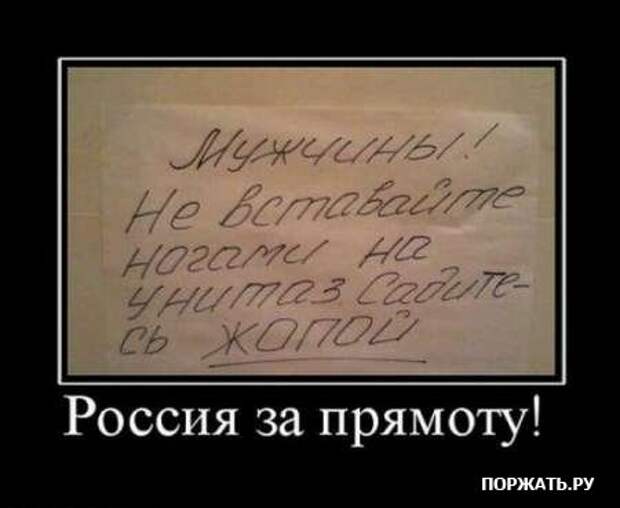 Мужчины!
Не вставайте
ногами на
унитаз. Садите-
сь ЖОПОЙ
Россия за прямоту!
ПОРЖАТЬ.РУ